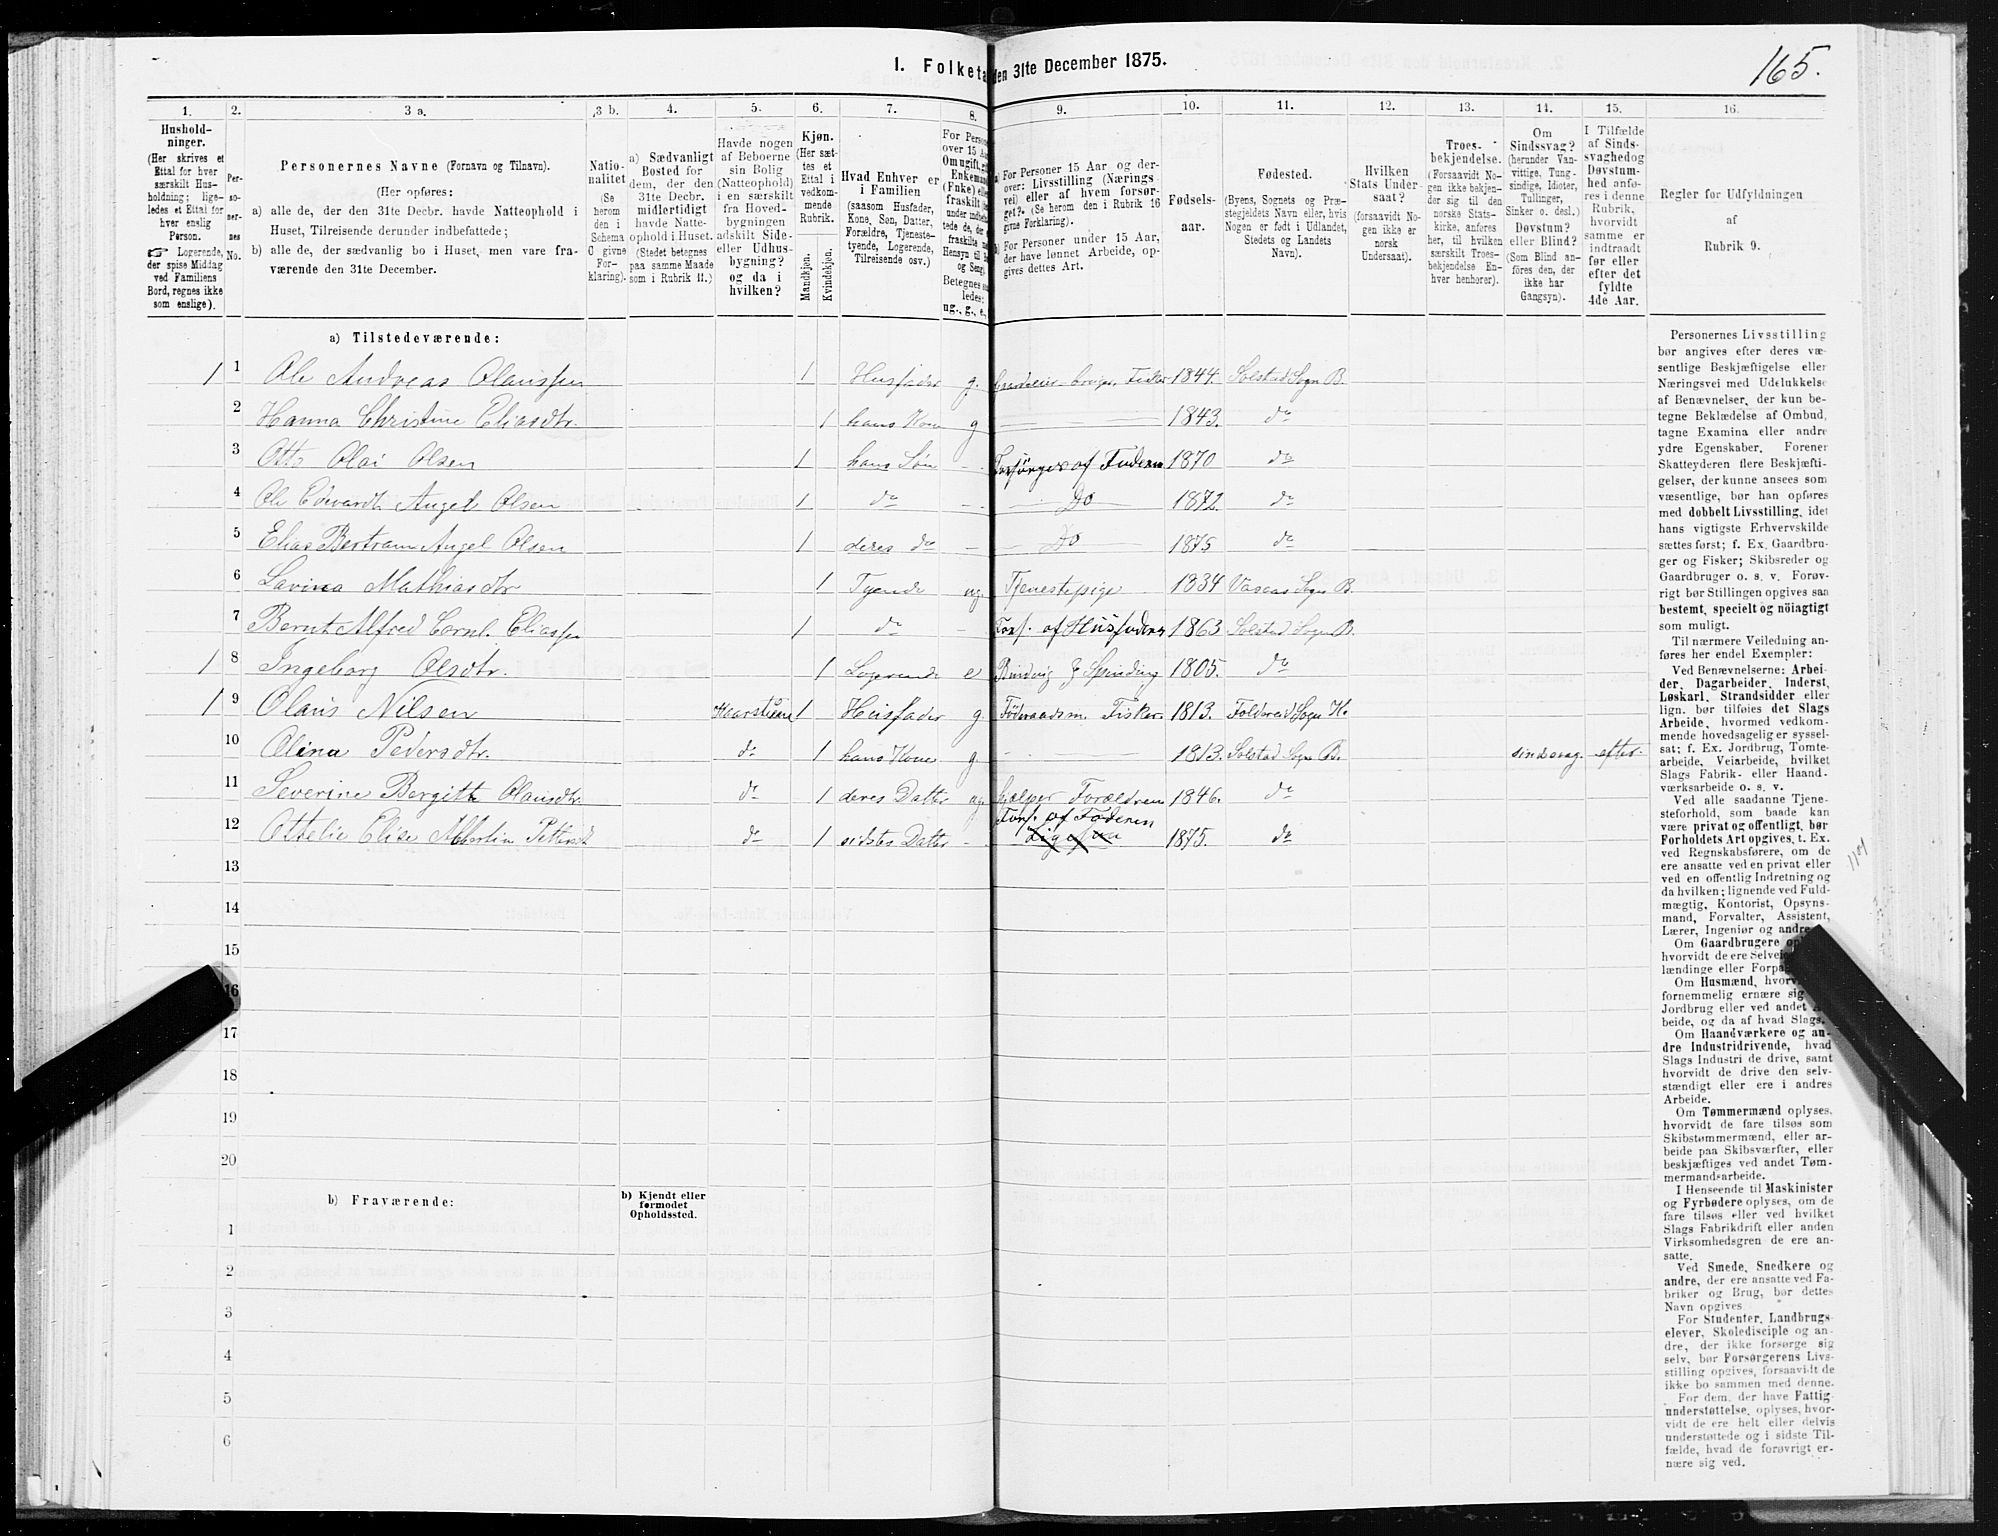 165.
I. Folketæ
den 31te December 1875.
1. 2. 3 a. 3 b. 4. 5. 6. 7. 8. 9. 10. 11. 12. 13. 14. 15. 16.
Hushold-
ninger.
(Her skrives et
Ettal for hver
særskilt Hus-
holdning; lige-
ledes et Ettal for
hver enslig
Person.
☞ Logerende,
der spise Middag
ved Familiens
Bord, regnes ikke
som enslige).
Per-
so-
ner-
nes
No.
Personernes Navne (Fornavn og Tilnavn).
(Her opføres:
a) alle de, der den 31te Decbr. havde Natteophold i
Huset, Tilreisende derunder indbefattede;
b) alle de, der sædvanlig bo i Huset, men vare fra-
værende den 31te December.
Natio-
nalitet
(Se
herom
den i
Schema
C givne
For-
klaring).
a) Sædvanligt
Bosted for
dem, der den
31te Decbr.
midlertidigt
havde Natte-
ophold i Huset.
(Stedet betegnes
paa samme Maade
som i Rubrik 11.)
Havde nogen
af Beboerne
sin Bolig
(Natteophold)
i en særskilt
fra Hoved-
bygningen
adskilt Side-
eller Udhus-
bygning?
og da i
hvilken?
Kjøn.
(Her sæt-
tes et
Ettal i
vedkom-
mende
Rubrik.
Mandkjøn.
Kvindekjøn.
Hvad Enhver er
i Familien
(saasom Husfader,
Kone, Søn, Datter,
Forældre, Tjeneste-
tyende, Logerende,
Tilreisende osv.)
For Person
over 15 Aa
Om ugift, gi
Enkeman
(Fnke) elle
fraskilt
Betegnes
ledes;
ug., g., e.,
a) For Personer 15 Aar og der-
over: Livsstilling (Nærings-
vei) eller af hvem forsør-
get?. (Se herom den i Rubrik 16
givne Forklaring).
b) For Personer under 15 Aar,
der have lønnet Arbeide, op-
gives dettes Art.
Fødsels-
aar.
Fødested.
(Byens, Sognets og Præ-
stegjeldets Navn eller, hvis
Nogen er født i Udlandet,
Stedets og Landets
Navn).
Hvilken
Stats Under-
saat?
(forsaavidt No-
gen ikke er
norsk
Undersaat).
Troes-
bekjendelse.
(Forsaavidt No-
gen ikke bekjen-
der sig til den
norske Stats-
kirke, anføres
her, til hvilken
særskilt Troes-
bekjendelse En-
hver henhører).
Om
Sindssvag?
(herunder Van-
vittige, Tung-
sindige, Idioter,
Tullinger,
Sinker o. desl.)
Døvstum?
eller Blind?
(Som Blind an-
føres den, der
ikke har
Gangsyn).
I Tilfælde
af Sinds-
svaghedog
Døvstum-
hed anfø-
res i denne
Rubrik,
hvorvidt
samme er
indtraadt
før eller
efter det
fyldte
4de Aar.
Regler for Udfyldningen
af
Rubrik 9.
a) Tilstedeværende:
1 1 Ole Andreas Olaussen 1 Husfader g. Gaardeier bruger, Fisker 1844. Solstad Sogn B.
2 Hanna Christine Eliasdtr. 1 hans Kone g 1843. do
3 Otto Olai Olsen 1 hans Søn - Forsørges af Faderen 1870 do
4 Ole Edvardt Angel Olsen 1 do - Do 1872. do
5 Elias Bertram Angel Olsen 1 deres do - Do 1875 do
6 Lavina Mathiasdtr 1 Tyende ug Tjenestepige 1834 Vasaas Sogn B.
7 Bernt Alfred Cornl. Eliassen 1 do - Fors. af Husfaderen 1863 Solstad Sogn B.
1 8 Ingeborg Olsdtr. 1 Logerende e Binding & Spinding 1805. do
1 9 Olaus Nilsen 1 Husfader g. Føderaadsm. Fisker. 1813. Foldereid Sogn K.
10 Olina Pedersdtr. do 1 hans Kone g 1813. Solstad Sogn B. sindssvag. efter.
11 Severine Bergitte Olausdtr. do 1 deres Datter ug hjælper Forældrene 1846. do
Fors. af Faderen
12 Ottelie Elise Albertin Pettersdt do 1 sidstes Datter - Ligesaa 1875. do
13
14
15
16
17
18
19
20
b) Fraværende:
b) Kjendt eller
formodet
Opholdssted.
1
2
3
4
5
6
Personernes Livsstilling
bør angives efter deres væ-
sentlige Beskjæftigelse eller
Næringsvei med Udelukkelse
af Benævnelser, der kun be-
tegne Beklædelse af Ombud,
tagne Examina eller andre
ydre Egenskaber. Forener
Skatteyderen flere Beskjæfti-
gelser, der kunne ansees som
væsentlige, bør han opføres
med dobbelt Livsstilling, idet
hans vigtigste Erhvervskilde
sættes først; f. Ex. Gaardbru-
ger og Fisker; Skibsreder og
Gaardbruger o. s. v. Forøv-
rigt bør Stillingen opgives saa
bestemt, specielt og nöiagtigt
som muligt.
Til nærmere Veiledning an-
føres her endel Exempler:
Ved Benævnelserne: Arbei-
der, Dagarbeider, Inderst,
Løskarl, Strandsidder eller
lign. bør tilføies det Slags
Arbeide, hvormed vedkom-
mende hovedsagelig er syssel-
sat; f. Ex. Jordbrug, Tomte-
arbeide, Veiarbeide, hvilket
Slags Fabrik- eller Haand-
værksarbeide o. s. v.
Ved alle saadanne Tjene-
steforhold, som baade kan
være privat og offentligt, bør
Forholdets Art opgives, t. Ex.
ved Regnskabsførere, om de
ere ansatte ved en privat eller
ved en offentlig Indretning og
da hvilken; lignende ved Fuld-
mægtig, Kontorist, Opsyns-
mand, Forvalter, Assistent,
Lærer, Ingeniør og andre
Om Gaardbrugere
hvorvidt de ere Selveie
lændinge eller Forpa
Om Husmænd, hvorv
fornemmelig ernære sig
Jordbrug eller ved andet A
beide, og da af hvad Slags.
Om Haandværkere og an-
dre Industridrivende, hvad
Slags Industri de drive, samt
hvorvidt de drive den selv-
stændigt eller ere i andres
Arbeide.
Om Tømmermænd oplyses,
hvorvidt de fare tilsøs som
Skibstømmermænd, eller ar-
beide paa Skibsværfter, eller
beskjæftiges ved andet Tøm-
mermandsarbeide.
I Henseende til Maskinister
og Fyrbødere oplyses, om de
fare tilsøs eller ved hvilket
Slags Fabrikdrift eller anden
Virksomhedsgren de ere an-
satte.
Ved Smede, Snedkere og
andre, der ere ansatte ved Fa-
briker og Brug, bør dettes
Navn opgives.
For Studenter, Landbrugs-
elever, Skoledisciple og an-
dre, der ikke forsørge sig
selv, bør Forsørgerens Livs-
stilling opgives, forsaavidt de
ikke bo sammen med denne.
For dem, der have Fattig-
understøttelse, oplyses, hvor-
vidt de ere helt eller delvis
understøttede og i sidste Til-
fælde, hvad de forøvrigt er-
nære sig ved.